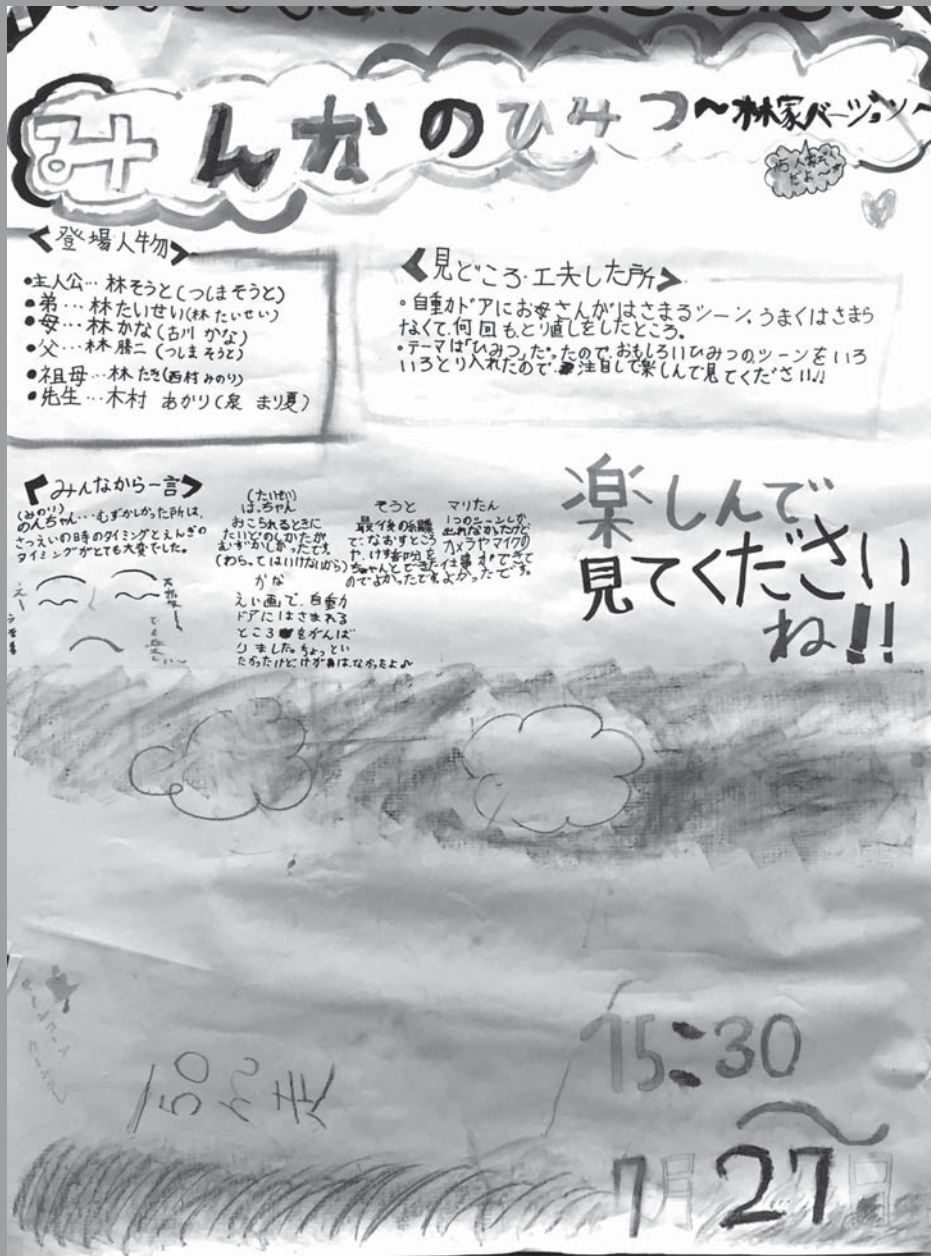 みんなのひみつ～林家バージョン～
5人家ぞく
だよ～
<登場人物>
•主人公…林そうと(つしまそうと)
•弟…林たいせい(林たいせい)
•母…林かな(古川かな)
•父…林勝二(つしまそうと)
•祖母…林たき(西村みのり)
•先生…木村 あかり(泉 まり夏)
<見どころ・工夫した所>
・自動ドアにお母さんがはさまるシーン、うまくはさまら
なくて、何回もとり直しをしたところ。
・テーマは「ひみつ」だったので、おもしろいひみつのシーンをいろ
いろとり入れたので、注目して楽しんで見てください!!
<みんなから一言>
(みのり)
のんちゃん…むずかしかった所は、
さつえいの時のタイミングとえんぎの
タイミングがとても大変でした。
(たいせい)
は、ちゃん
おこられるときに
たいどのしかたが
むずかしかったです。
(わらってはいけないから)
かな
えい画で、自動
ドアにはさまれる
ところをがんば
りました。ちょっとい
たかったけどけがはなかったよ♪
そうと
最後の編
で、なおすところ
や、けす部分を
ちゃんとできた
のでよかったです。
マリたん
1つのシーンしか
出れなかったけど
カメラやマイクの
仕事ができて
よかったです。
楽しんで
見てください
ね!!
15:30
～
7月27日